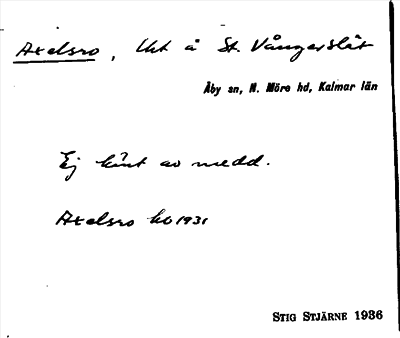 Axelsro, lht å St. Vångerslät
Åby sn, N. Möre hd, Kalmar län
Ej känt av medd.
Axelsro kb 1931
STIG STJÄRNE 1936